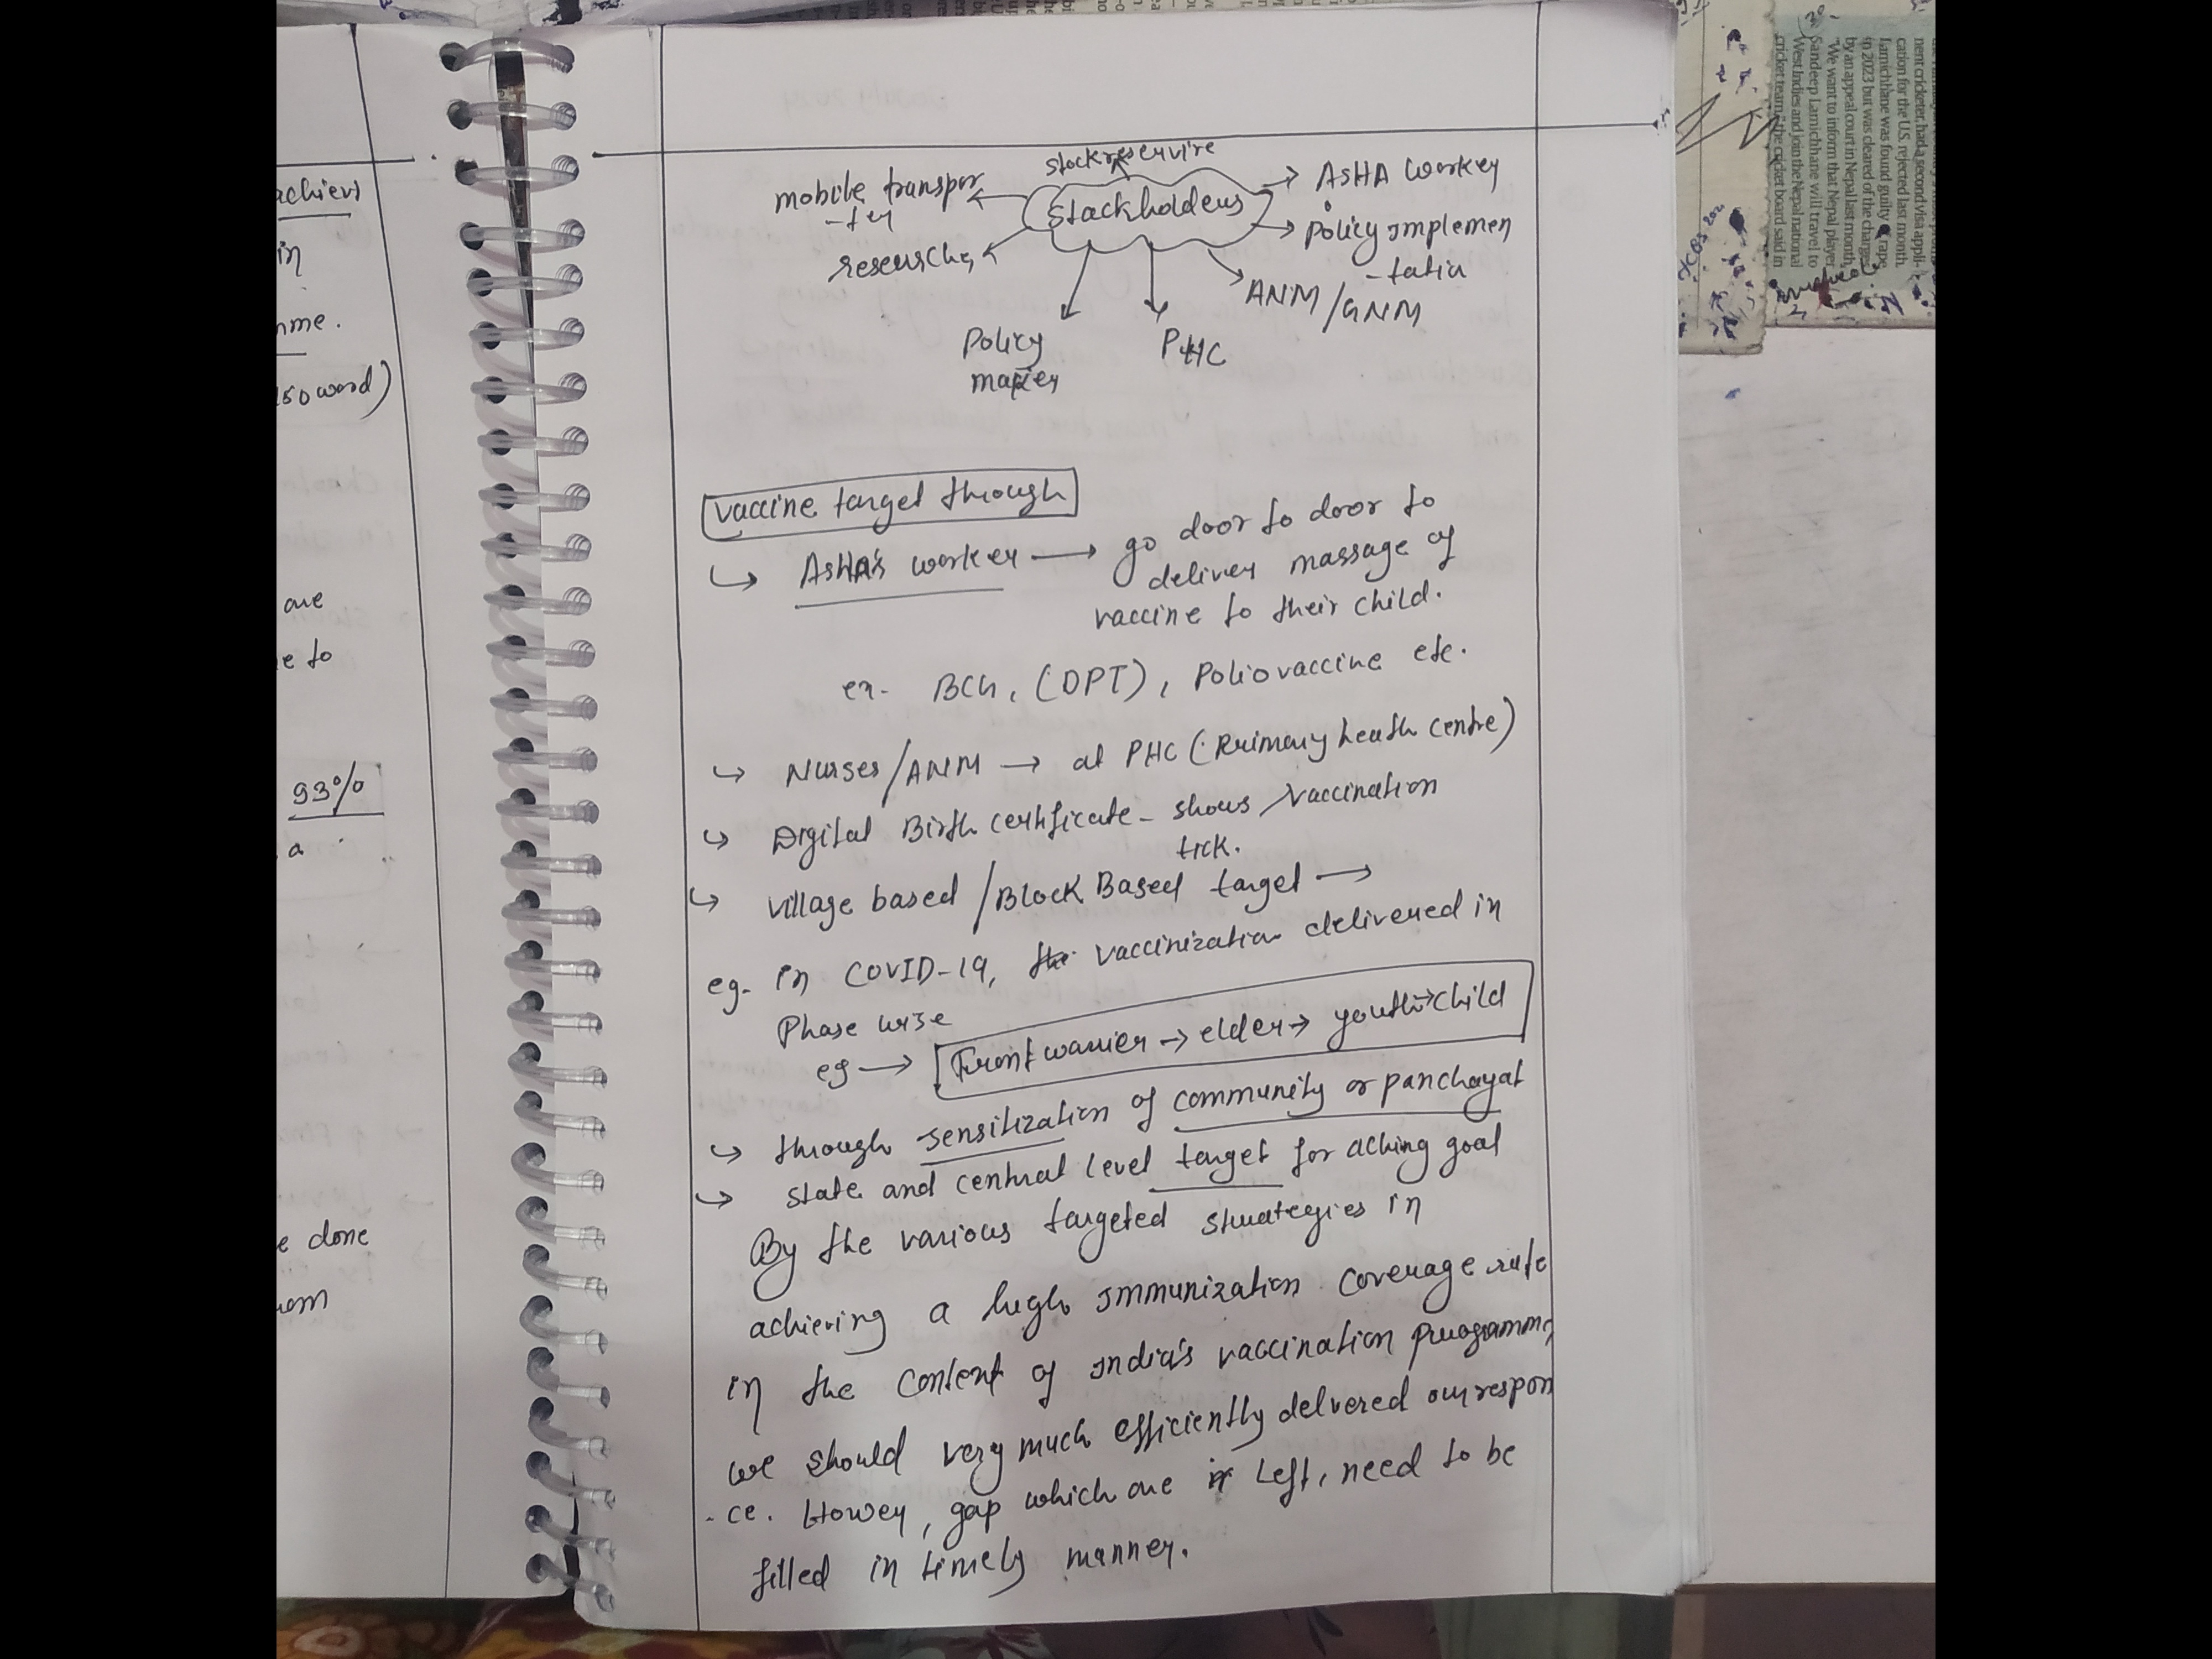 achievi
in
mme.
150 word)
are
e to
93%
a
e done
stockreservire
mobile transpor
-ter
Stackholders
ASHA worker
Policy implemen
-tatin
ANM/GNM
PHC
Policy
maker
vaccine target through
↳ ASHA's worker → go door to door to
deliver massage of
vaccine to their child.
ex- BCG, (DPT), Polio vaccine etc.
↳ Nurses/ANM → at PHC (Primary heath centre)
↳ Digital Birth certificate - shows vaccination
tick.
↳ village based /Block Based target →
eg. in COVID-19, the vaccinization delivered in
Phase wise
eg → Front warrier → elder → youth → child
↳ through sensitization of community or panchayat
↳ state and central level target for aching goal
By the various targeted strategies in
achieving a high immunization coverage rate
in the content of India's vaccination programm
we should very much efficiently delvered our respon
-ce. Hower, gap which are left, need to be
filled in timely manner.
cricketer, had a second visa appli-
cation for the U.S. rejected last month.
Lamichhane was found guilty of rape
in 2023 but was cleared of the charge
by an appeal court in Nepal last month.
"We want to inform that Nepal player
Sandeep Lamichhane will travel to
West Indies and join the Nepal national
cricket team," the cricket board said in